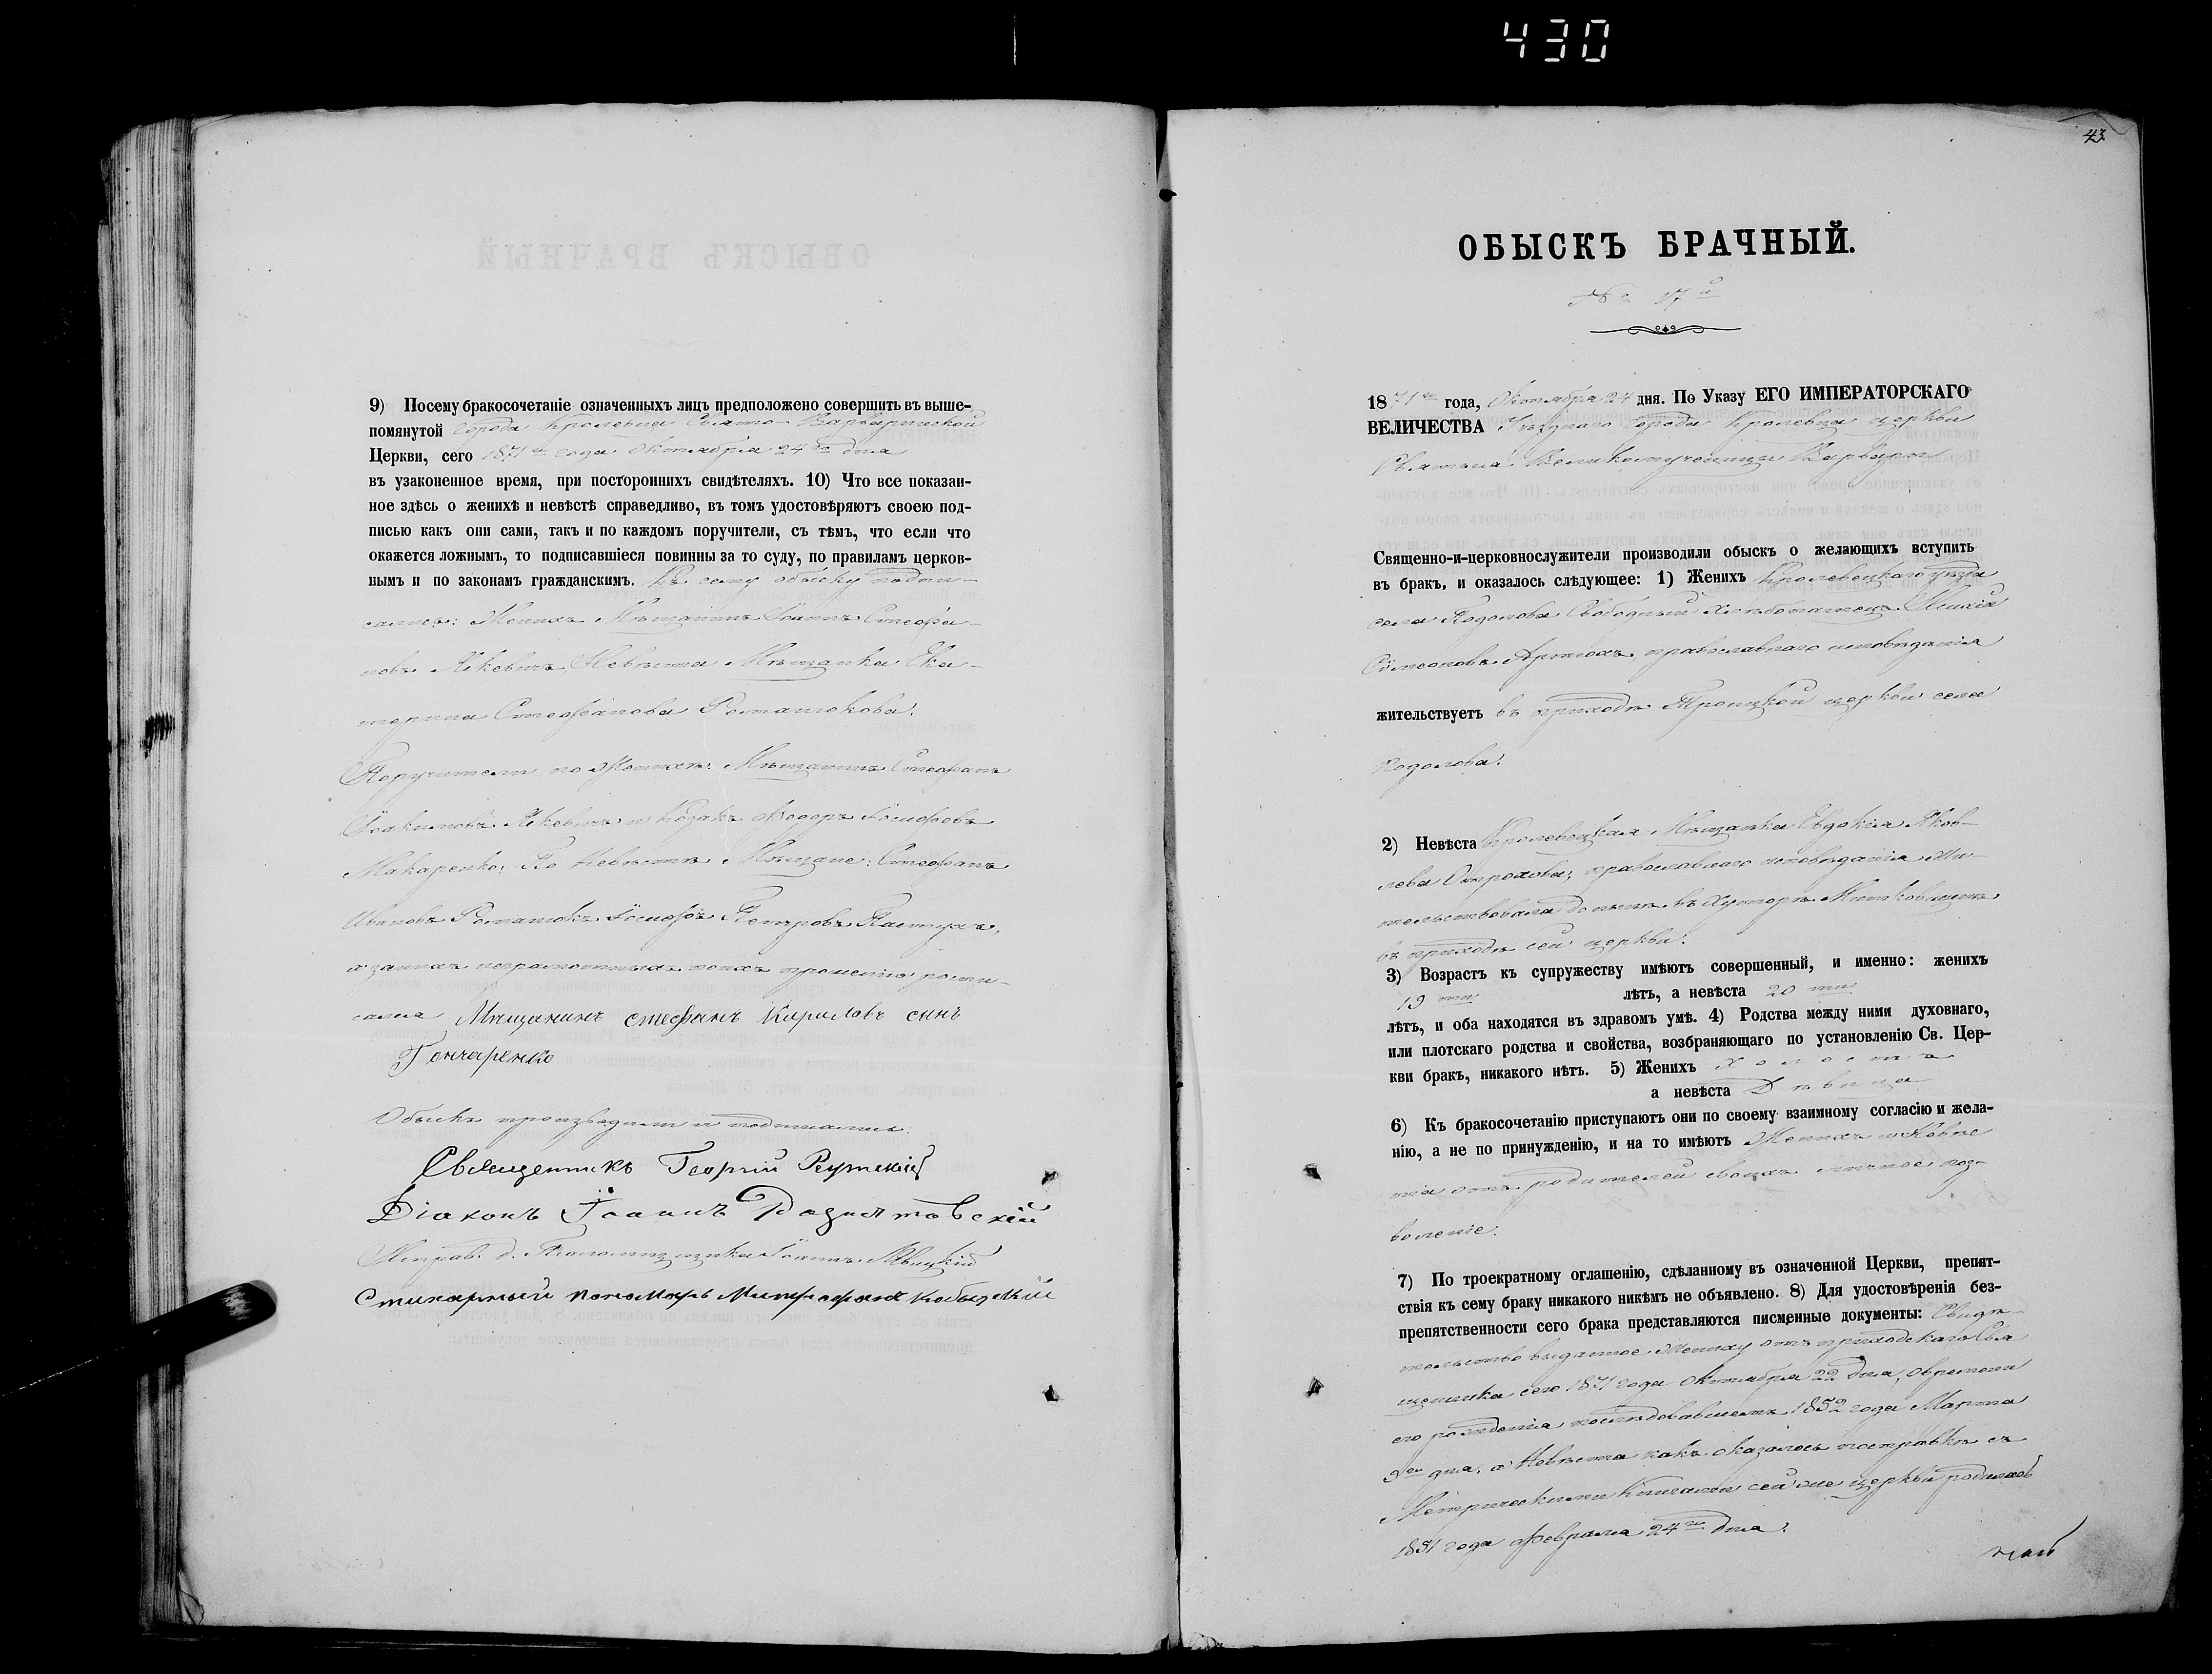 430
9) Посему бракосочетаніе означенныхъ лицъ предположено совершить въ выше-
помянутой города Кролевца Свято-Варваринской
Церкви, сего 1871го года Октября 24го дня
въ узаконенное время, при постороннихъ свидѣтеляхъ. 10) Что все показан-
ное здѣсь о женихѣ и невѣстѣ справедливо, въ томъ удостовѣряютъ своею под-
писью какъ они сами, такъ и по каждомъ поручители, съ тѣмъ, что если что
окажется ложнымъ, то подписавшіеся повинны за то суду, по правиламъ церков-
нымъ и по законамъ гражданскимъ. Къ сему обыску подпи-
сались: Женихъ Мѣщанинъ Іоаннъ Стефа-
новъ Якевичъ Невѣста Мѣщанка Ека-
терина Стефанова Романюкова.
Поручители по Женихѣ: Мѣщанинъ Стефанъ
Іоакимовъ Якевичъ и Козакъ Федоръ Іосифовъ
Макаренко; По Невѣстѣ Мѣщане: Стефанъ
Ивановъ Романюкъ Іосифъ Петровъ Пастухъ,
а за нихъ неграмотныхъ по ихъ прошенію роспи-
сался Мѣщанинъ стефанъ Кириловъ сынъ
Гончаренко
Обыскъ производили и подписались:
Священникъ Георгій
Діаконъ Іоаннъ
Исправ. д. Псаломщика Іоаннъ
Стихарный пономарь Митрофанъ
43
ОБЫСКЪ БРАЧНЫЙ.
№ 17й
1871го года, Октября 24 дня. По Указу ЕГО ИМПЕРАТОРСКАГО
ВЕЛИЧЕСТВА Уѣзднаго города Кролевца церкви
Святыя Великомученицы Варвары
Священно-и-церковнослужители производили обыскъ о желающихъ вступить
въ бракъ, и оказалось слѣдующее: 1) Женихъ Кролевецкаго уѣзда
села Подолова Свободный Хлѣбопашецъ
Сѵмеоновъ православнаго исповѣданія
жительствуетъ въ приходѣ Троицкой церкви села
Подолова.
2) Невѣста Кролевецкая Мѣщанка Евдокія Яков-
лева православнаго исповѣданія жи-
тельствовала до нынѣ въ Хуторѣ
въ приходѣ сей церкви.
3) Возрастъ къ супружеству имѣютъ совершенный, и именно: женихъ
19 ти лѣтъ, а невѣста 20 ти
лѣтъ, и оба находятся въ здравомъ умѣ. 4) Родства между ними духовнаго,
или плотскаго родства и свойства, возбраняющаго по установленію Св. Цер-
кви бракъ, никакого нѣтъ. 5) Женихъ Холостъ
а невѣста Дѣвица
6) Къ бракосочетанію приступаютъ они по своему взаимному согласію и жела-
нію, а не по принужденію, и на то имѣютъ Женихъ и Невѣ
ста отъ родителей своихъ личное поз-
воленіе.
7) По троекратному оглашенію, сдѣланному въ означенной Церкви, препят-
ствія къ сему браку никакого никѣмъ не объявлено. 8) Для удостовѣренія без-
препятственности сего брака представляются писменные документы: Свидѣ-
тельство выданное Жениху отъ приходскаго Свя
щенника сего 1871 года Октября 22 дня, о времени
его рожденія послѣдовавшемъ 1852 года Марта
9го дня, а Невѣста какъ оказалось по справкѣ съ
Метрическими Книгами сей же церкви родилась
1851 года Февраля 24го дня.